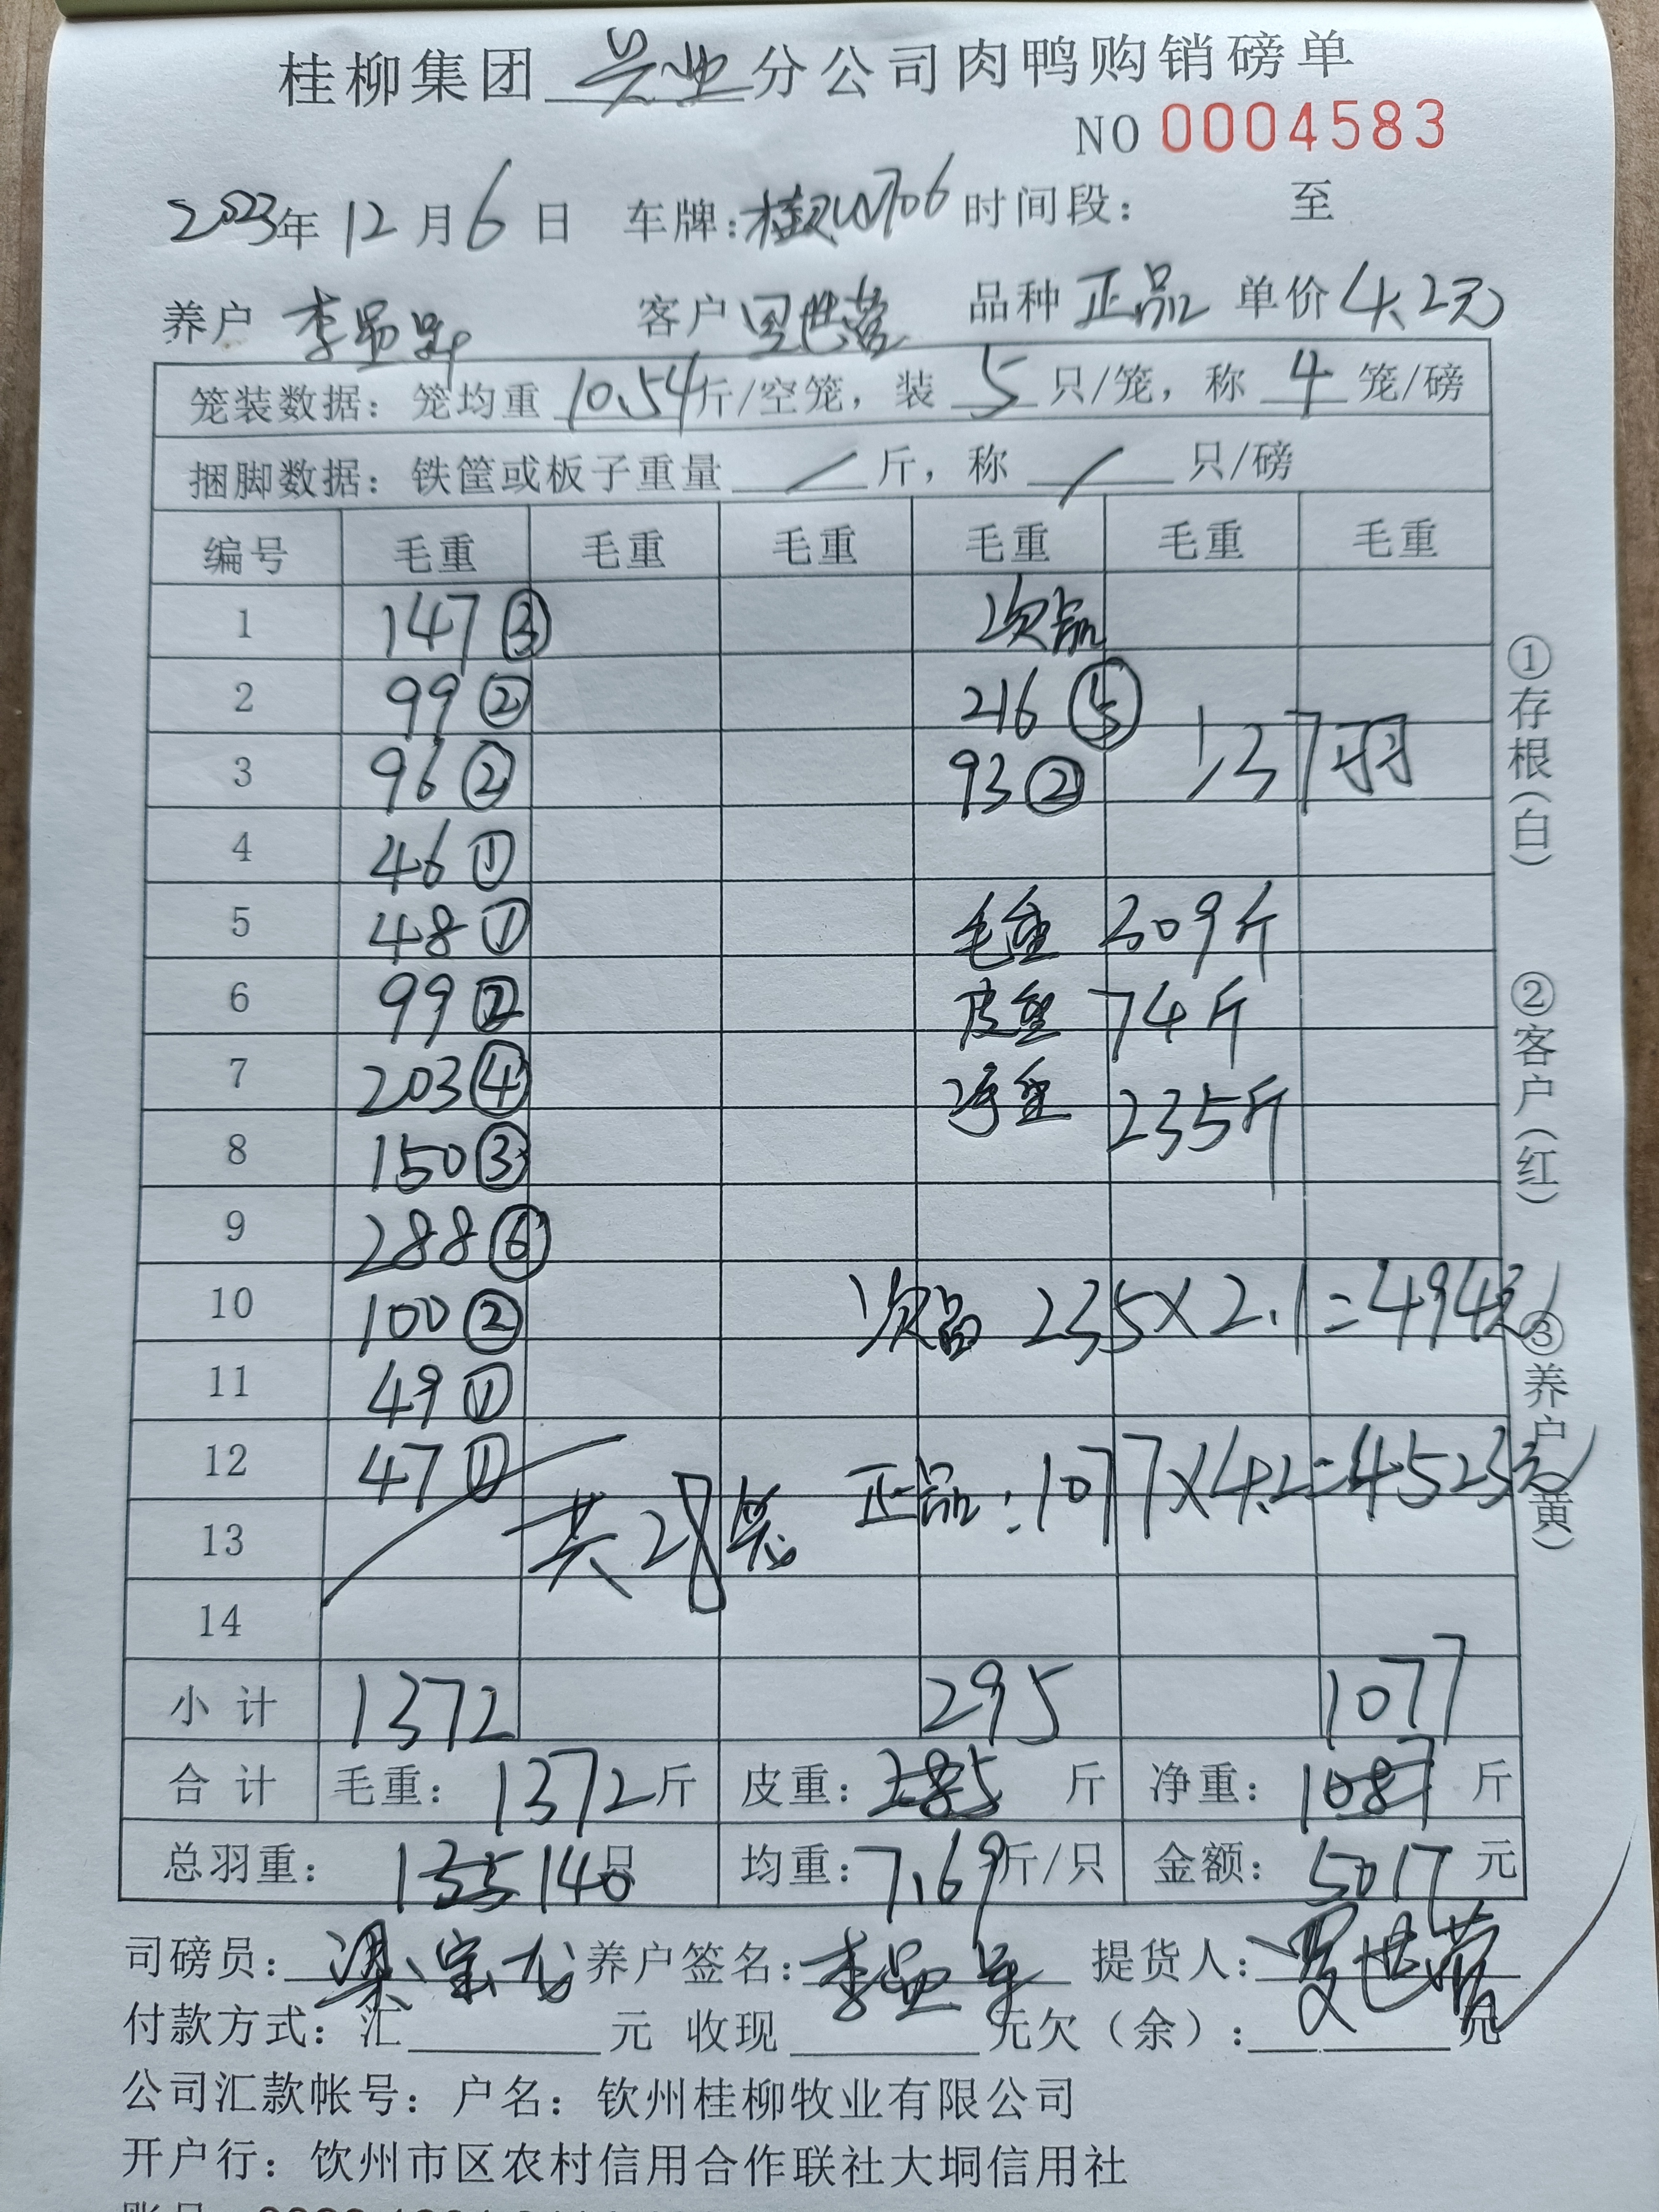 桂柳集团 兴业 分公司肉鸭购销磅单
NO 0004583
2023年 12 月 6 日 车牌: 时间段: 至
养户 李 客户 品种 正品 单价 4.2元
笼装数据: 笼均重 10.54 斤/空笼, 装 5 只/笼, 称 4 笼/磅
捆脚数据: 铁筐或板子重量 / 斤, 称 / 只/磅
编号 毛重 毛重 毛重 毛重 毛重 毛重
1 147 ③ 次品
2 99 ② 216 ⑤
3 96 ② 93 ② 37羽
4 46 ①
5 48 ① 毛重 309斤
6 99 ② 皮重 74斤
7 203 ④ 净重 235斤
8 150 ③
9 288 ⑥
10 100 ② 次品 235×2.1=494元
11 49 ①
12 47 ① 正品:1077×4.2=4523元
13 共28笼
14
小 计 1372 295 1077
合 计 毛重: 1372 斤 皮重: 285 斤 净重: 1087 斤
总羽重: 135 140 只 均重: 7.69 斤/只 金额: 5017 元
司磅员: 梁宝 养户签名: 李 提货人: 罗世营
付款方式: 汇 元 收现 元欠(余): 元
公司汇款帐号: 户名: 钦州桂柳牧业有限公司
开户行: 钦州市区农村信用合作联社大垌信用社
①存根(白)
②客户(红)
③养户(黄)